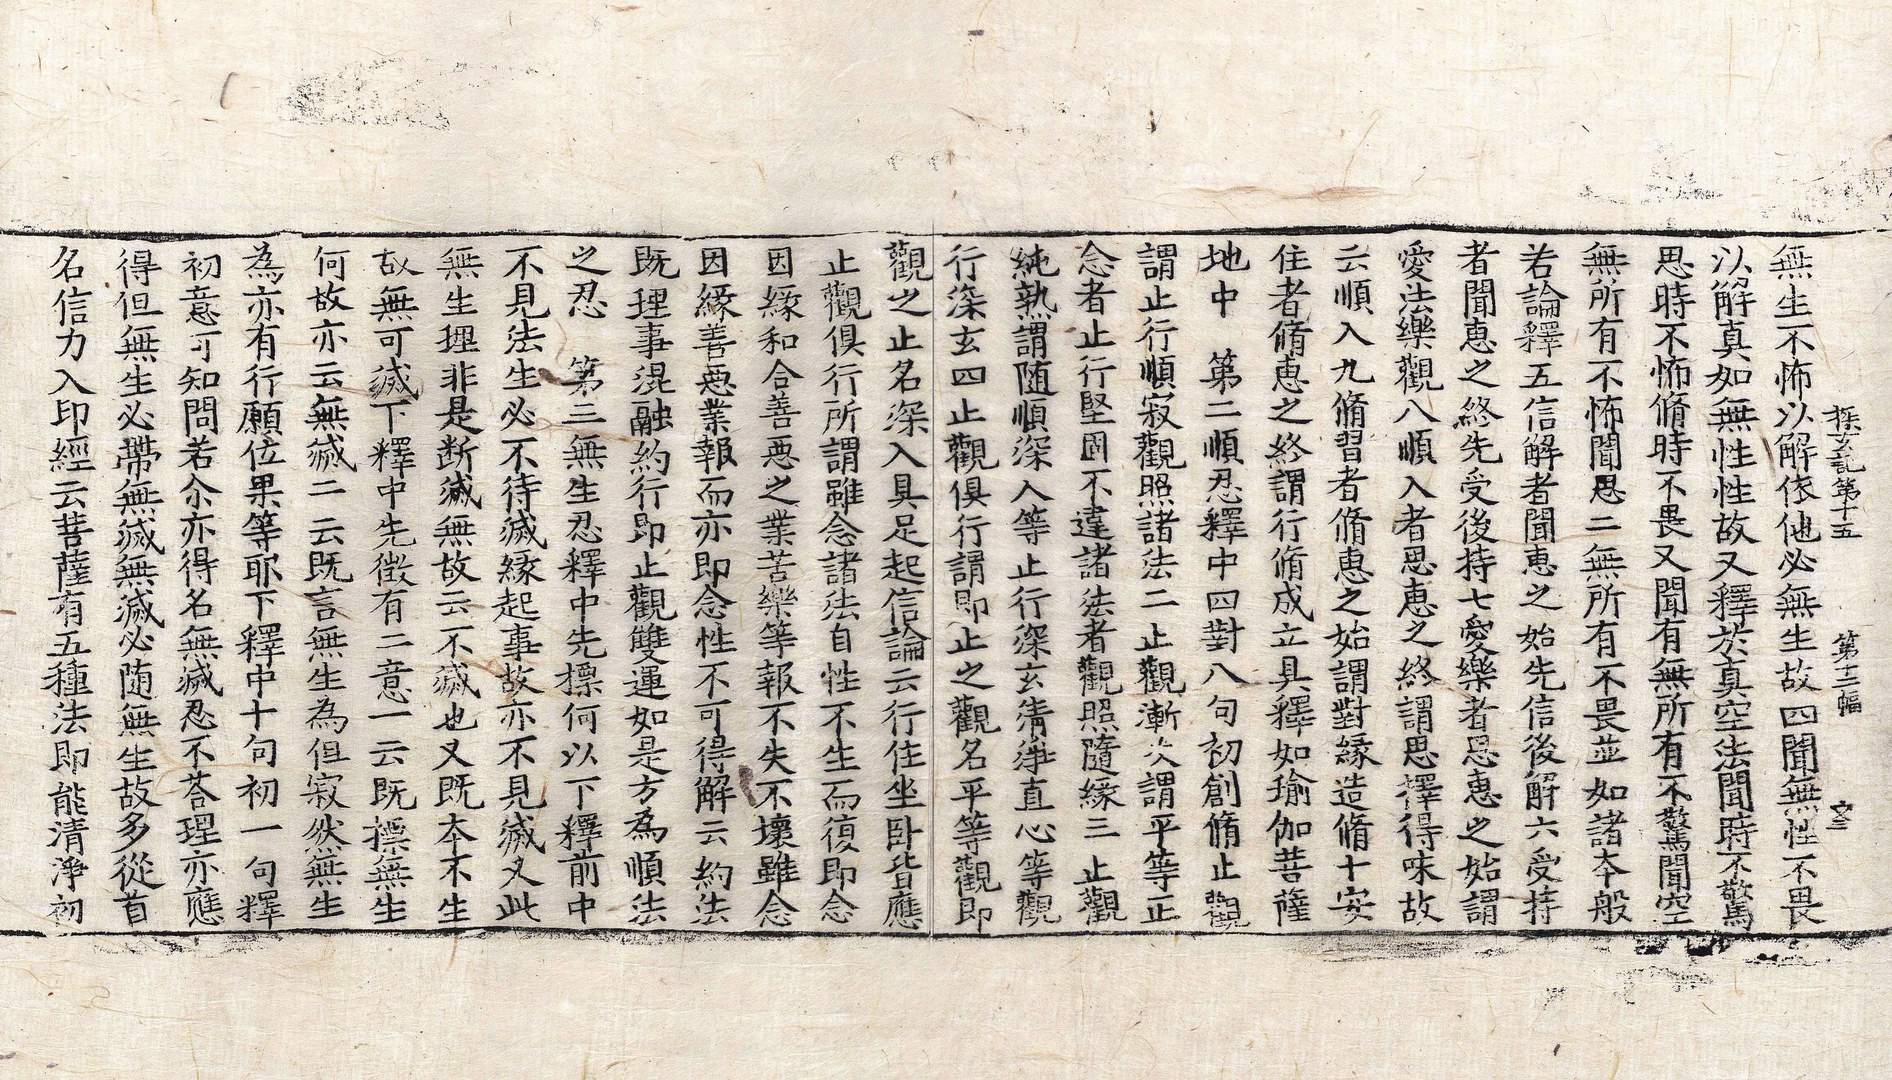 探玄記第十五 第十二幅 文三
無生不怖以解依他必無生故四聞無性不畏
以解真如無性性故又釋於真空法聞時不驚
思時不怖脩時不畏又聞有無所有不驚聞空
無所有不怖聞思二無所有不畏並如諸本般
若論釋五信解者聞恵之始先信後解六受持
者聞恵之終先受後持七愛樂者思恵之始謂
愛法樂觀八順入者思恵之終謂思擇得味故
云順入九脩習者脩恵之始謂對緣造脩十安
住者脩恵之終謂行脩成立具釋如瑜伽菩薩
地中 第二順忍釋中四對八句初創脩止觀
謂止行順寂觀觀照諸法二止觀漸次謂平等正
念者止行堅固不違諸法者觀照隨緣三止觀
純熟謂随順深入等止行深玄清淨直心等觀
行深玄四止觀俱行謂即止之觀名平等觀即
觀之止名深入具足起信論云行住坐卧皆應
止觀俱行所謂雖念諸法自性不生而復即念
因緣和合善惡之業苦樂等報不失不壞雖念
因緣善惡業報而亦即念性不可得解云約法
既理事混融約行即止觀雙運如是方為順法
之忍 第三無生忍釋中先摽何以下釋前中
不見法生必不待滅緣起事故亦不見滅又此
無生理非是断滅無故云不滅也又既本不生
故無可滅下釋中先徴有二意一云既摽無生
何故亦云無滅二云既言無生為但寂然無生
為亦有行願位果等耶下釋中十句初一句釋
初意可知問若尒亦得名無滅忍不荅理亦應
得但無生必帶無滅無滅必随無生故多從首
名信力入印經云菩薩有五種法即能清淨初